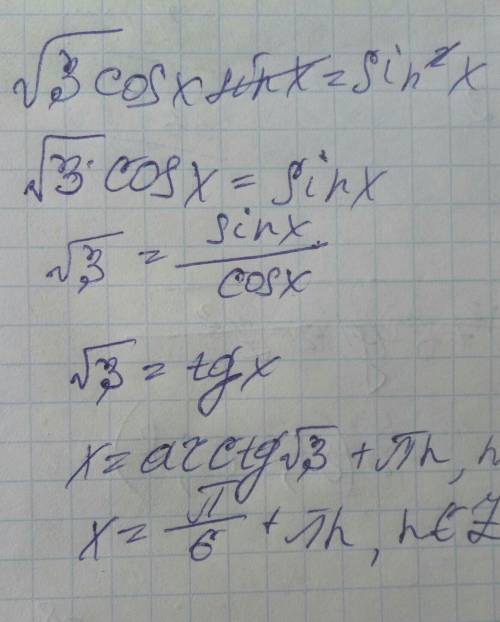 √3 cosx sinx = sin²x
√3 cosx = sinx
√3 = sinx/cosx
√3 = tgx
x = arctg√3 + πn, n
x = π/6 + πn, n∈Z